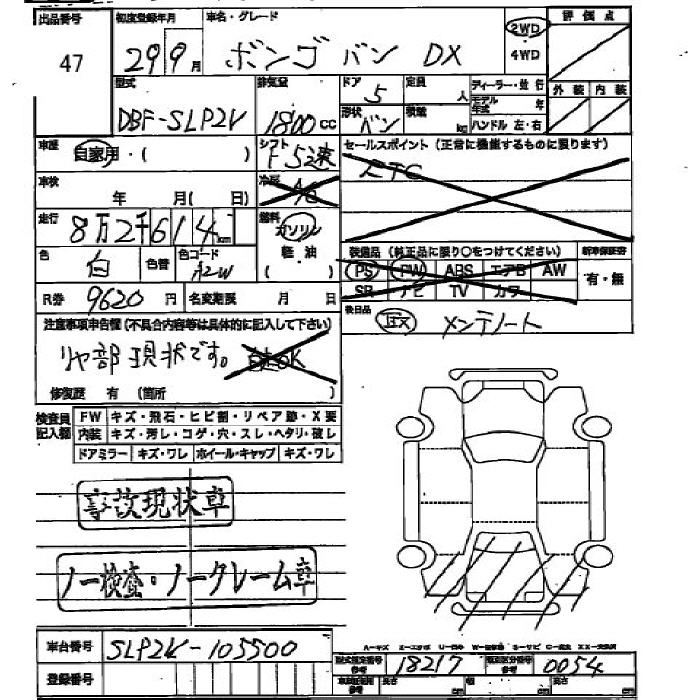 出品番号 初度登録年月 車名・グレード 2WD 評価点
47 29 9月 ボンゴバン DX ・4WD
型式 排気量 ドア 定員 ディーラー・並行 外装 内装
DBF-SLP2V 1800cc 5 人 モデル年式 年
形状 バン 積載 kg ハンドル 左・右
車歴 自家用・( ) シフト F5速 セールスポイント(正常に機能するものに限ります)
車検 年 月(日) 冷房 A/C ETC
走行 8万2千614km 燃料 ガソリン 軽油
装備品(純正品に限り○をつけてください) 新車保証書
色 白 色替 色コード A2W PS PW ABS エアB AW 有・無
SR ナビ TV カワ
R券 9620円 名変期限 月 日 後日品 メンテノート
注意事項申告欄(不具合内容等は具体的に記入して下さい)
リヤ部現状です。
修復歴 有(箇所
検査員記入欄 FW キズ・飛石・ヒビ割・リペア跡・X要
内装 キズ・汚レ・コゲ・穴・スレ・ヘタリ・破レ
ドアミラー キズ・ワレ ホイール・キャップ キズ・ワレ
事故現状車
ノー検査・ノークレーム車
A-キズ E-エクボ U-凹み W-波 S-サビ C-腐食 XX-交換済
車台番号 SLP2V-105500 型式指定番号 参考 18217 類別区分番号 参考 0054
登録番号 長さ cm 幅 cm 高さ cm